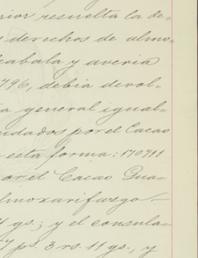 rior resulta la de-
s derechos de almo-
cabala y avería
796, debía devol-
ia general igual-
udados por el Cacao
esta forma: 170711
or el Cacao Gua-
lmoxarifazgo-
gs; y el consula-
ps. 3 rs. 11 gs., y